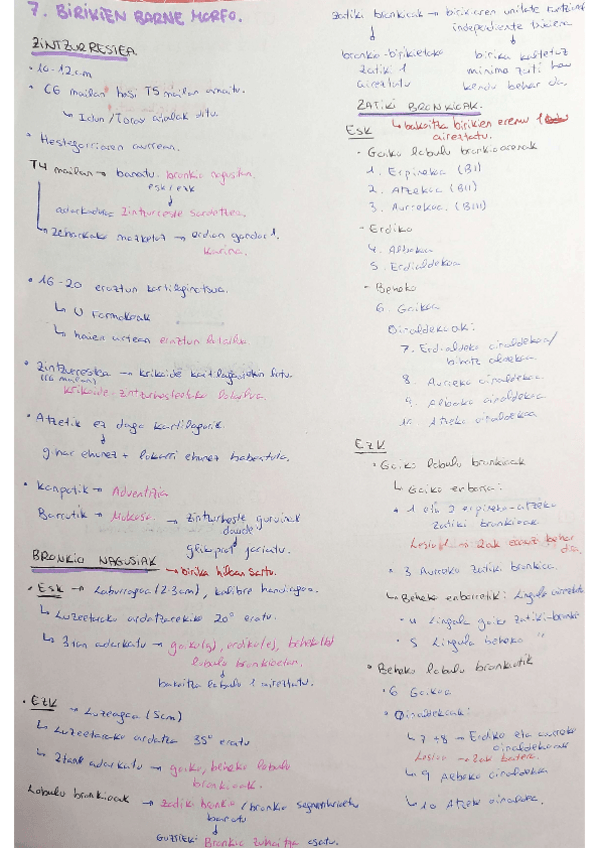 7. BIRIKIEN BARNE MORFO.
ZINTZURRESTEA
• 10-12 cm
• C6 mailan hasi T5 mailan amaitu.
↳ Idun/Torax atalak ditu.
• Hestegorriaren aurrean.
T4 mailan → banatu bronkio nagusitan
esk/ezk
adarkadura zintzurreste sardetzea.
↳ zeharkako mozketa → erdian gandor 1.
Karina.
• 16-20 eraztun kartilaginotsua.
↳ U formakoak
↳ haien artean eraztun lotailu
• Zintzurrestea → krikoide kartilagoarekin lotu.
(C6 mailan)
Krikoide-zintzurhesteetako lotailua.
• Atzetik ez dago kartilagorik.
gihar ehunez + lokarri ehunez babestuta.
• Kanpotik → Adventizia
Barrutik → Mukosa. → zintzurheste guruinak
daude
glikoprot jariatu.
BRONKIO NAGUSIAK → birika hiloan sartu.
• Esk → Laburragoa (2-3cm), kalibre handiagoa.
↳ Luzeetarako ardatzarekiko 20° eratu
↳ 3tan adarkatu → goiko(a), erdiko(e), beheko(b)
lobulu bronkioetan.
bakoitza lobulu 1 aireztatu.
• EZK → Luzeagoa (5cm)
↳ Luzeetarako ardatza 35° eratu
↳ 2tan adarkatu → goiko, beheko lobulu
bronkioak.
Lobulu bronkioak → zatiki bronko / bronkio segmentarioetan
banatu
GUZTIEK: Bronkio zuhaitza osatu.
Zatiki bronkioak → birikaren unitate funtzional
independiente txikiena
bronko-birikietako
zatiki 1
aireztatu
birika kasketaz
minimo zati hau
kendu behar da.
ZATIKI BRONKIOAK.
↳ bakoitza birikien eremu 1
aireztatu.
ESK
- Goiko lobulu bronkioarenak
1. Erpinekoa (BI)
2. Atzekoa (BII)
3. Aurrekoa (BIII)
- Erdiko
4. Albokoa
5. Erdialdekoa
- Beheko
6. Goikoa
Oinaldekoak:
7. Erdialdeko oinaldekoa/
bihotz aldekoa.
8. Aurreko oinaldekoa
9. Alboko oinaldekoa
10. Atzeko oinaldekoa
EZK
• Goiko lobulu bronkioak
↳ Goiko enborra:
• 1 eta 2 erpineko-atzeko
zatiki bronkioak
Lesio 1 → 2ak kendu behar
dira.
• 3 Aurreko zatiki bronkioa.
↳ Beheko enborretik: Lingula aireztatu
• 4 Lingula goiko zatiki-bronkio
• 5 Lingula beheko "
• Beheko lobulu bronkiotik
• 6 Goikoa
• Oinaldekoak:
↳ 7+8 → Erdiko eta aurreko
oinaldekoak
Lesioa → 2ak batera.
↳ 9 Alboko oinaldekoa
↳ 10 Atzeko oinaldekoa.